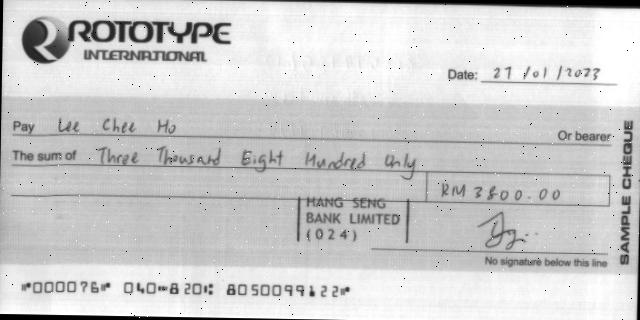 ROTOTYPE
INTERNATIONAL
Date: 27/01/2023
Pay Lee Chee Ho Or bearer
The sum of Three Thousand Eight Hundred Only
RM 3800.00
HANG SENG
BANK LIMITED
(024)
No signature below this line
SAMPLE CHEQUE
⑈000076⑈ 040⑉820⑆ 8050099122⑈